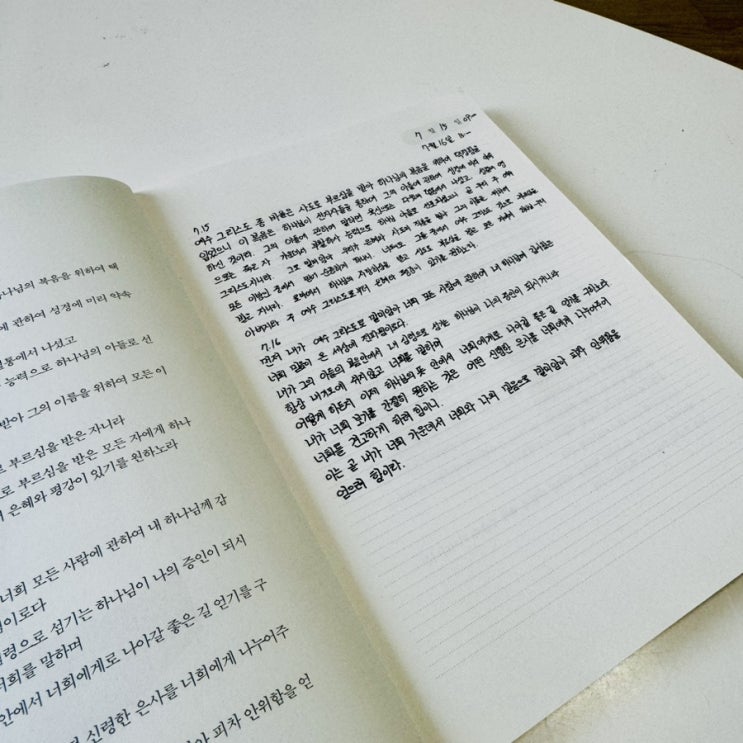 하나님의 복음을 위하여 택
에 관하여 성경에 미리 약속
혈통에서 나셨고
능력으로 하나님의 아들로 선
받아 그의 이름을 위하여 모든 이
부르심을 받은 자니라
로 부르심을 받은 모든 자에게 하나
은혜와 평강이 있기를 원하노라
너희 모든 사람에 관하여 내 하나님께 감
이로다
심령으로 섬기는 하나님이 나의 증인이 되시
너희를 말하며
안에서 너희에게로 나아갈 좋은 길 얻기를 구
신령한 은사를 너희에게 나누어주
피차 안위함을 얻
7월 15일
7월 16일
7.15
예수 그리스도의 종 바울은 사도로 부르심을 받아 하나님의 복음을 위하여 택정함을
입었으니 이 복음은 하나님이 선지자들을 통하여 그의 아들에 관하여 성경에 미리 약속
하신 것이라. 그의 아들에 관하여 말하면 육신으로는 다윗의 혈통에서 나셨고 성결의 영
으로는 죽은 자 가운데서 부활하사 능력으로 하나님의 아들로 선포되셨으니 곧 우리 주 예수
그리스도시니라. 그로 말미암아 우리가 은혜와 사도의 직분을 받아 그의 이름을 위하여
모든 이방인 중에서 믿어 순종하게 하나니 너희도 그들 중에서 예수 그리스도의 것으로 부르심을
받은 자니라. 로마에서 하나님의 사랑하심을 받고 성도로 부르심을 받은 모든 자에게 하나님 우리
아버지와 주 예수 그리스도로부터 은혜와 평강이 있기를 원하노라.
7.16
먼저 내가 예수 그리스도로 말미암아 너희 모든 사람에 관하여 내 하나님께 감사함은
너희 믿음이 온 세상에 전파됨이로다.
내가 그의 아들의 복음 안에서 내 심령으로 섬기는 하나님이 나의 증인이 되시거니와
항상 내 기도에 쉬지 않고 너희를 말하며
어떻게 하든지 이제 하나님의 뜻 안에서 너희에게로 나아갈 좋은 길 얻기를 구하노라.
내가 너희 보기를 간절히 원하는 것은 어떤 신령한 은사를 너희에게 나누어주어
너희를 견고하게 하려 함이니
이는 곧 내가 너희 가운데서 너희와 나의 믿음으로 말미암아 피차 안위함을
얻으려 함이라.